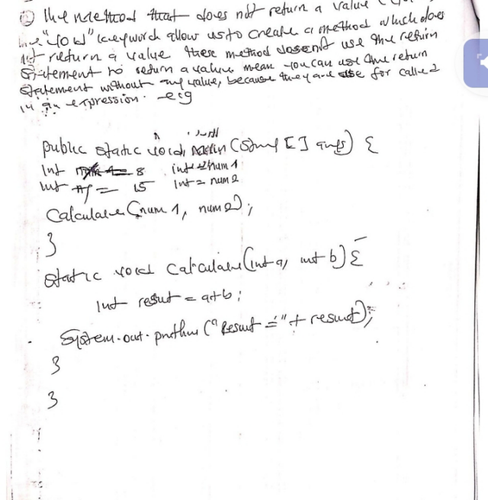 The method that does not return a value
The "void" keyword allow us to create a method which does
not return a value these method doesent use the return
Statement to return a value mean you can use the return
Statement without any value, because they are use for called
in an expression. eg
public static void main (String [] args) {
int = 8 int = num 1
int = 15 int = num 2
Calculate (num 1, num 2);
}
static void Calculate (int a, int b) {
int result = a+b;
System.out.println ("Result =" + result);
}
}